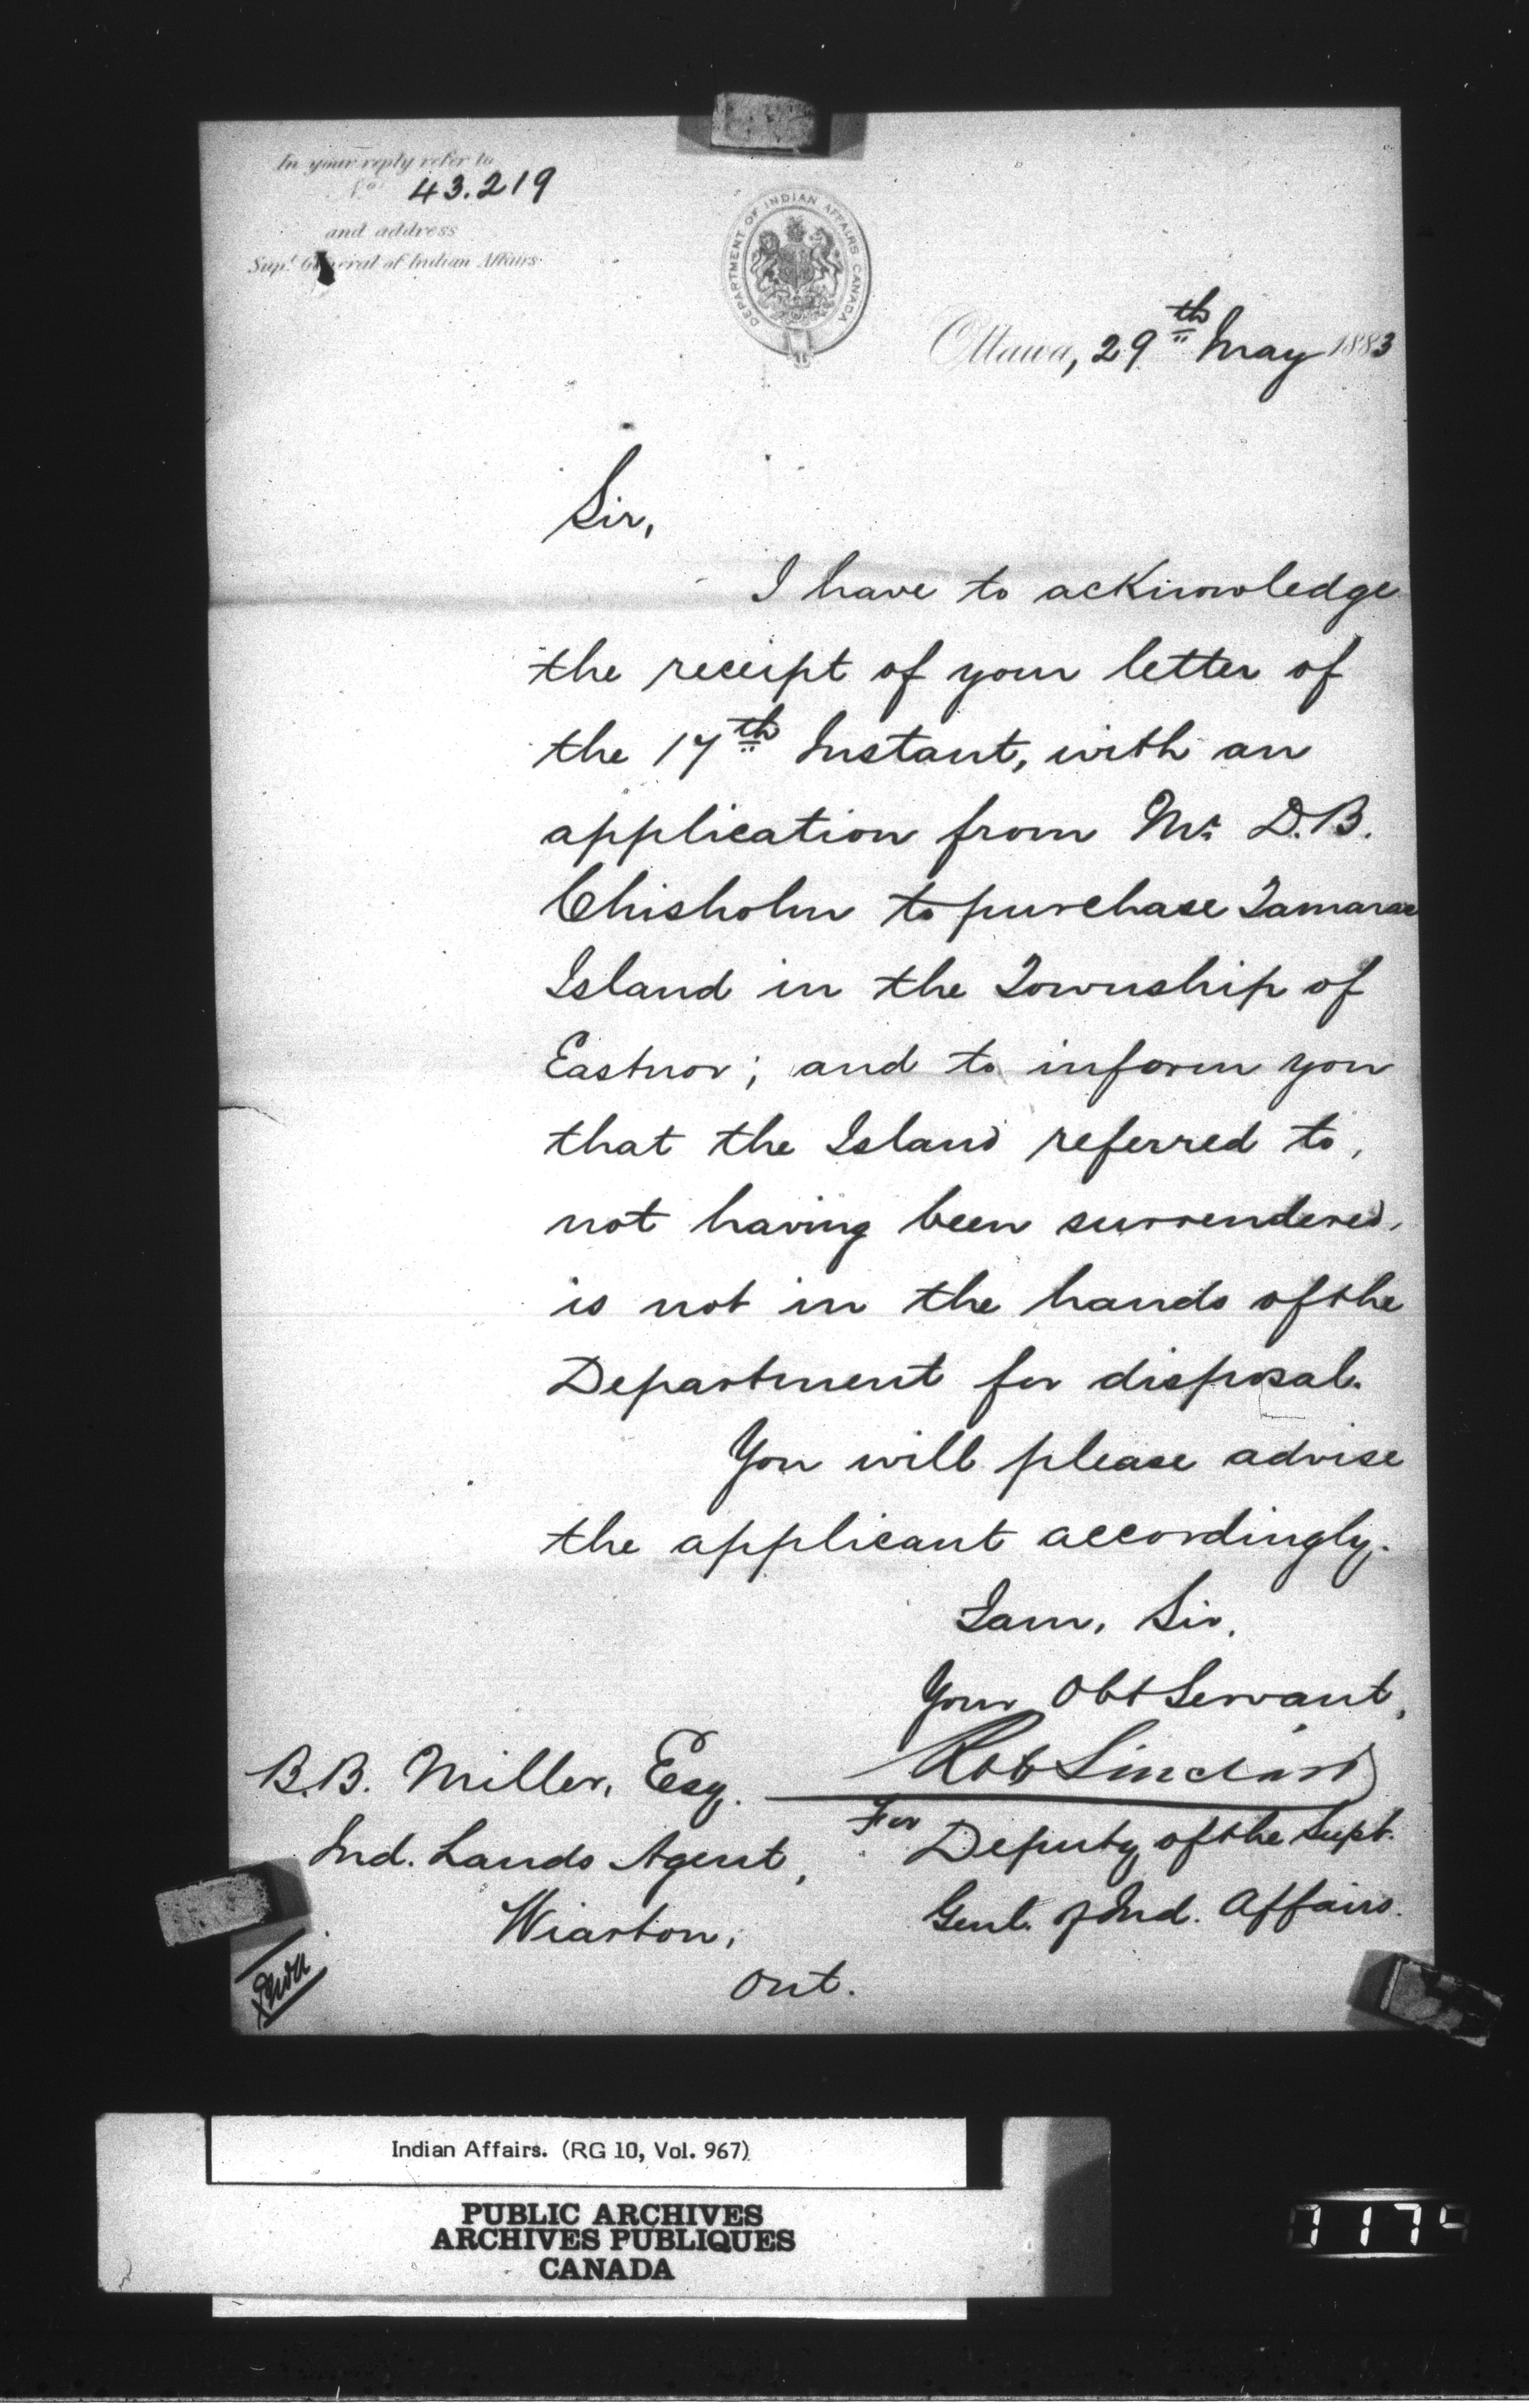 In your reply refer to
No. 43.219
and address
Supt. General of Indian Affairs.
DEPARTMENT OF INDIAN AFFAIRS CANADA
Ottawa, 29th May 1883
Sir,
I have to acknowledge
the receipt of your letter of
the 17th Instant, with an
application from Mr. D.B.
Chisholm to purchase Tamarac
Island in the Township of
Eastnor; and to inform you
that the Island referred to,
not having been surrendered,
is not in the hands of the
Department for disposal.
You will please advise
the applicant accordingly.
I am, Sir,
Your Obt Servant,
Rob Sinclair
For Deputy of the Supt.
Genl. of Ind. Affairs.
B.B. Miller, Esq.
Ind. Lands Agent,
Wiarton,
Ont.
Indian Affairs. (RG 10, Vol. 967)
PUBLIC ARCHIVES
ARCHIVES PUBLIQUES
CANADA